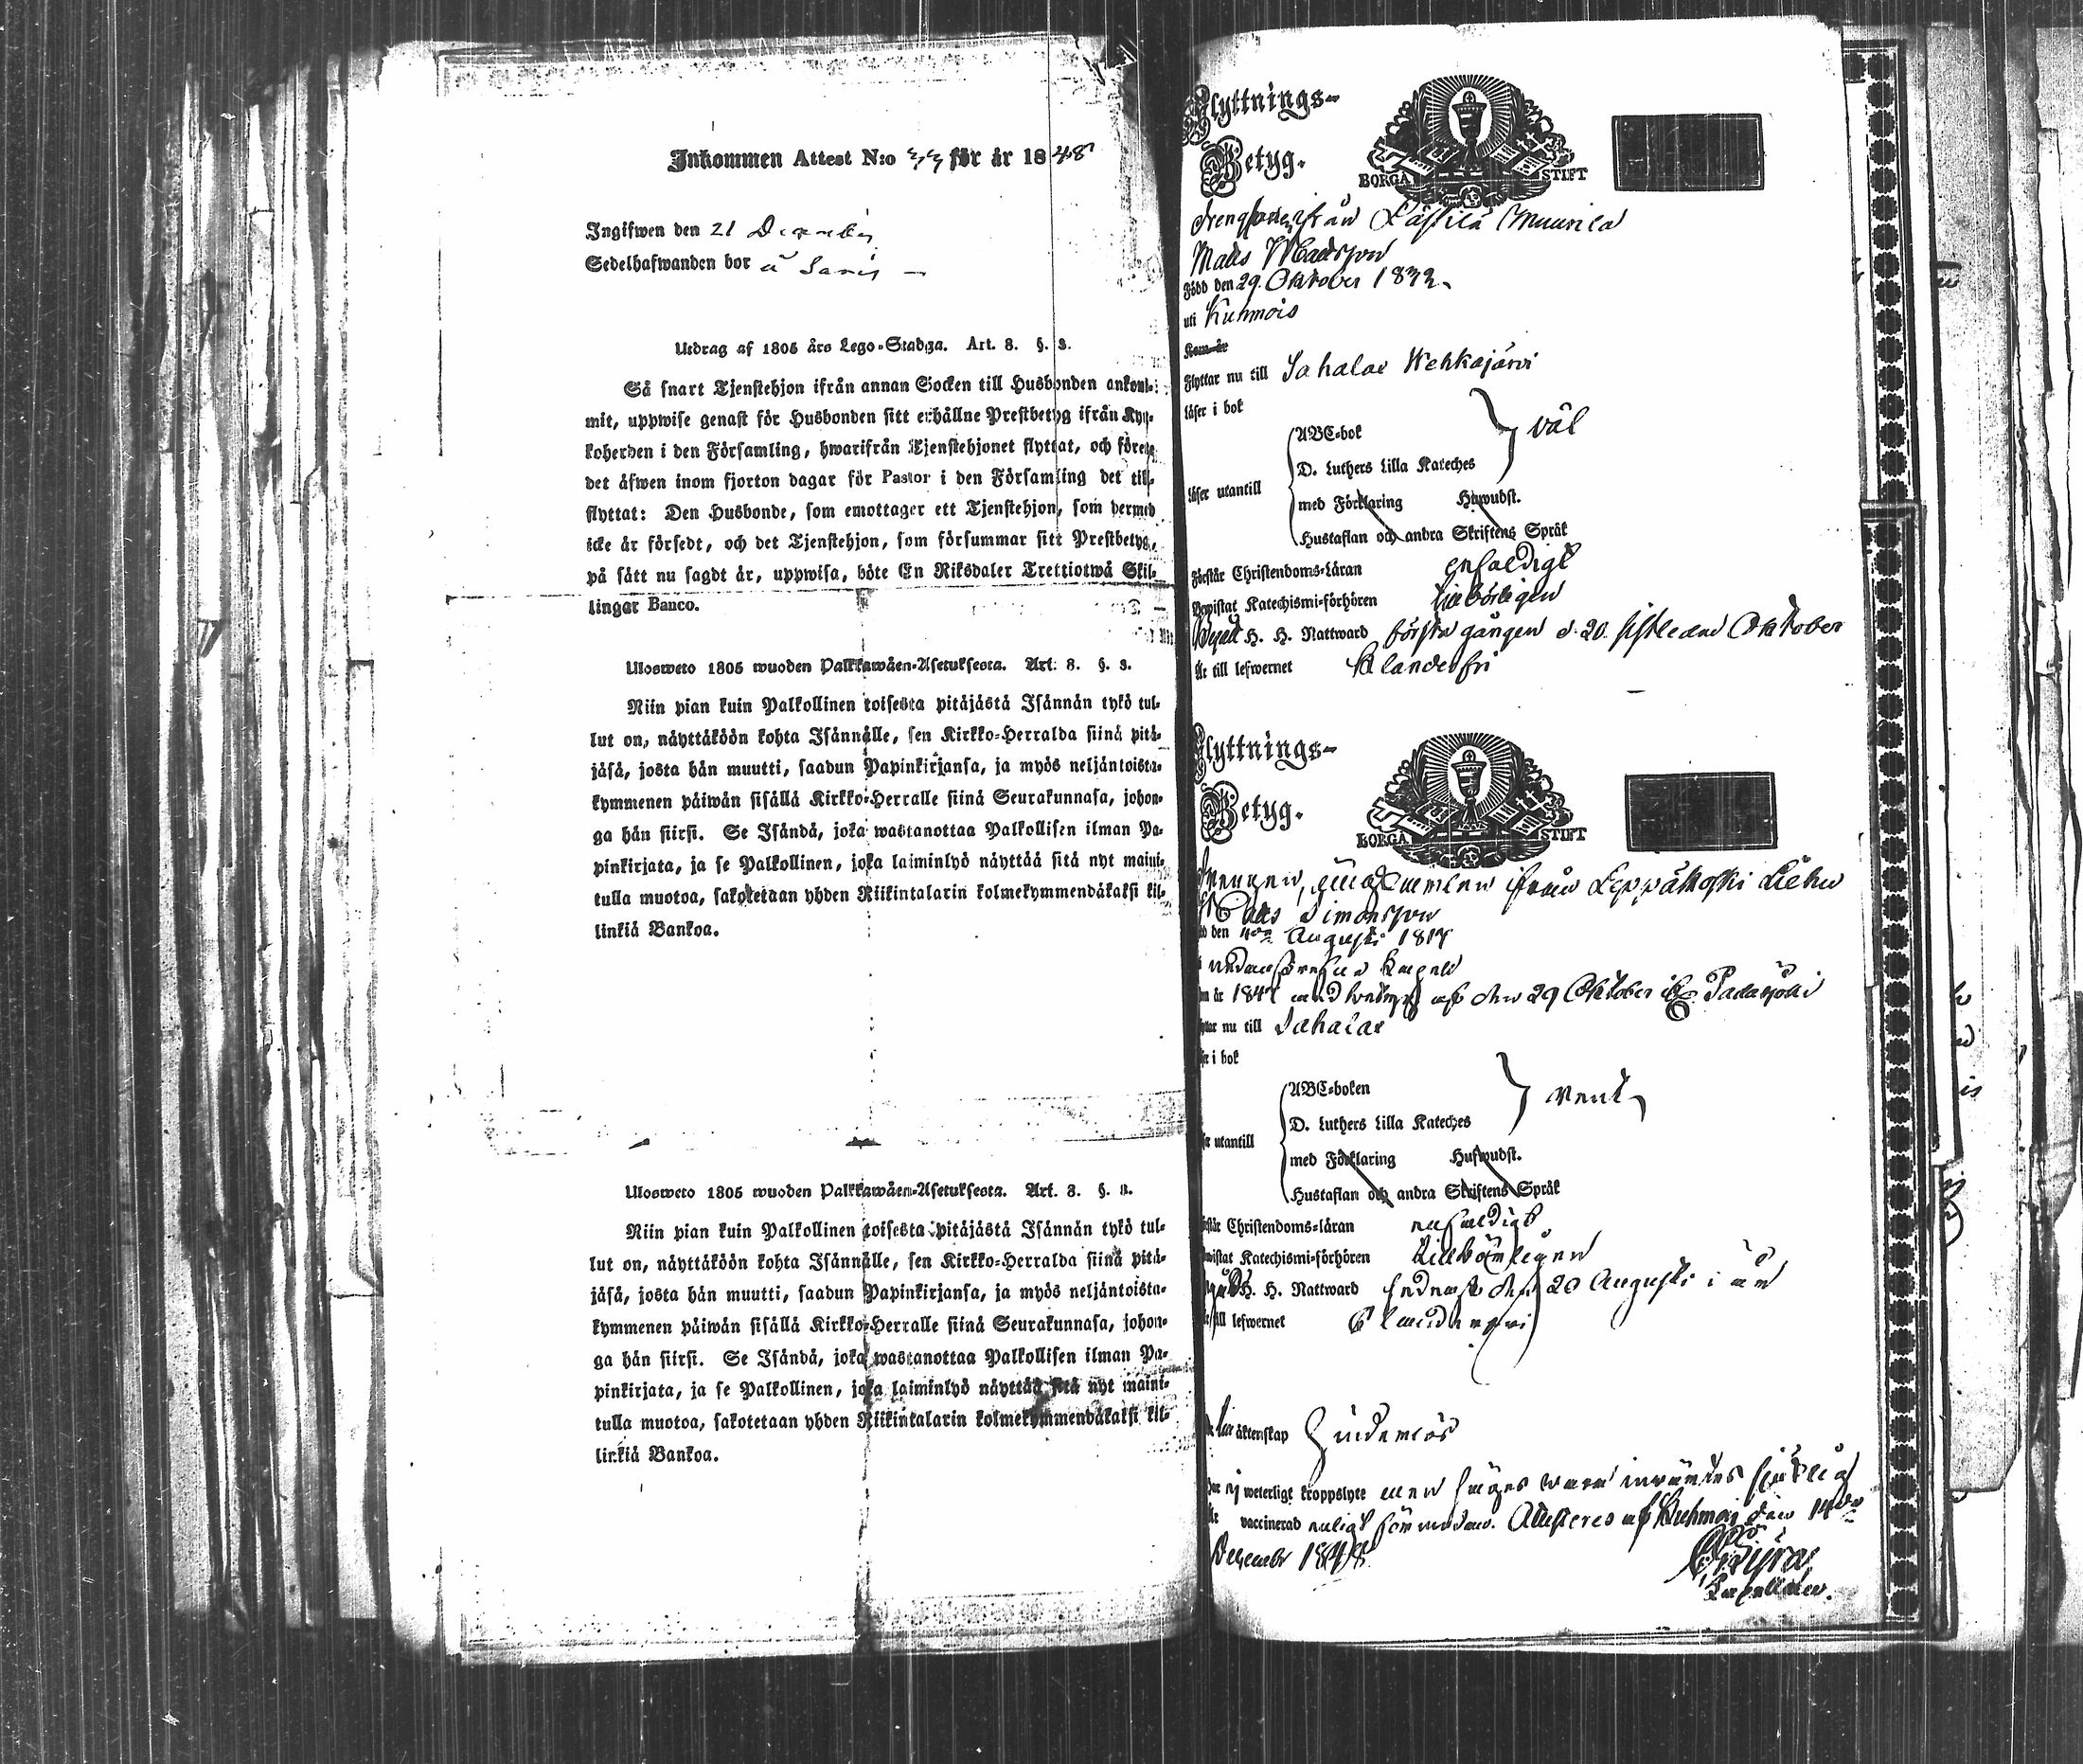 Inkommen Attest N:o 44 för år 1848
Ingifwen den 21 December
Sedelhafwanden bor å Saris
Utdrag af 1805 års Lego-Stadga. Art. 8. §. 3.
Så snart Tjenstehjon ifrån annan Socken till Husbonden ankom-
mit, uppwise genast för Husbonden sitt erhållne Prestbetyg ifrån Kyr-
koherden i den Församling, hwarifrån Tjenstehjonet flyttat, och förete
det äfwen inom fjorton dagar för Pastor i den Församling det till-
flyttat: Den Husbonde, som emottager ett Tjenstehjon, som dermed
icke är försedt, och det Tjenstehjon, som försummar sitt Prestbetyg,
på sätt nu sagdt är, uppwisa, böte En Riksdaler Trettiotwå Skil-
lingar Banco.
Ulosweto 1805 wuoden Palkkawäen-Asetuksesta. Art. 8. §. 3.
Niin pian kuin Palkollinen toisesta pitäjästä Isännän tykö tul-
lut on, näyttäköön kohta Isännälle, sen Kirkko-Herralda siinä pitä-
jäsä, josta hän muutti, saadun Papinkirjansa, ja myös neljäntoista-
kymmenen päiwän sisällä Kirkko-Herralle siinä Seurakunnasa, johon-
ga hän siirsi. Se Isändä, joka wastanottaa Palkollisen ilman Pa-
pinkirjata, ja se Palkollinen, joka laiminlyö näyttää sitä nyt maini-
tulla muotoa, sakotetaan yhden Riikintalarin kolmekymmendäkaksi kil-
linkiä Bankoa.
Ulosweto 1805 wuoden Palkkawäen-Asetuksesta. Art. 8. §. 3.
Niin pian kuin Palkollinen toisesta pitäjästä Isännän tykö tul-
lut on, näyttäköön kohta Isännälle, sen Kirkko-Herralda siinä pitä-
jäsä, josta hän muutti, saadun Papinkirjansa, ja myös neljäntoista-
kymmenen päiwän sisällä Kirkko-Herralle siinä Seurakunnasa, johon-
ga hän siirsi. Se Isändä, joka wastanottaa Palkollisen ilman Pa-
pinkirjata, ja se Palkollinen, joka laiminlyö näyttää sitä nyt maini-
tulla muotoa, sakotetaan yhden Riikintalarin kolmekymmendäkaksi kil-
linkiä Bankoa.
Flyttnings-
Betyg.
BORGÅ STIFT
från Lästilä Muurila
Mats Matsson
Född den 29. Oktober 1832.
uti Kuhmois
Kom år
Flyttar nu till Sahalax Wehkajärvi
läser i bok
ABC-bok
D. Luthers Lilla Kateches
väl
läser utantill
med Förklaring Hufwudst.
Hustaflan och andra Skriftens Språk
Förstår Christendoms-Läran enfaldigt
Bewistat Katechismi-förhören tillbörligen
Begått H. H. Nattward första gången d. 20. sistledne Oktober
Är till lefwernet klanderfri
Flyttnings-
Betyg.
BORGÅ STIFT
Drengen, från Leppäkoski
Mats Simonsson
den Augusti 1817
Kapell
år 1847 med betyg af den 29 Oktober ifr. Padasjoki
Flyttar nu till Sahalax
i bok
ABC-boken
D. Luthers Lilla Kateches
rent
utantill
med Förklaring Hufwudst.
Hustaflan och andra Skriftens Språk
Förstår Christendoms-läran enfaldigt
Bewistat Katechismi-förhören tillbörligen
Begått H. H. Nattward sednast den 20 Augusti i år
till lefwernet klanderfri
äktenskap hinderlös
Har ej weterligt kroppslyte men säges vara invärtes sjuklig
Är vaccinerad enligt Attesteras af Kuhmois den 14de
December 1848.
Kapellan.